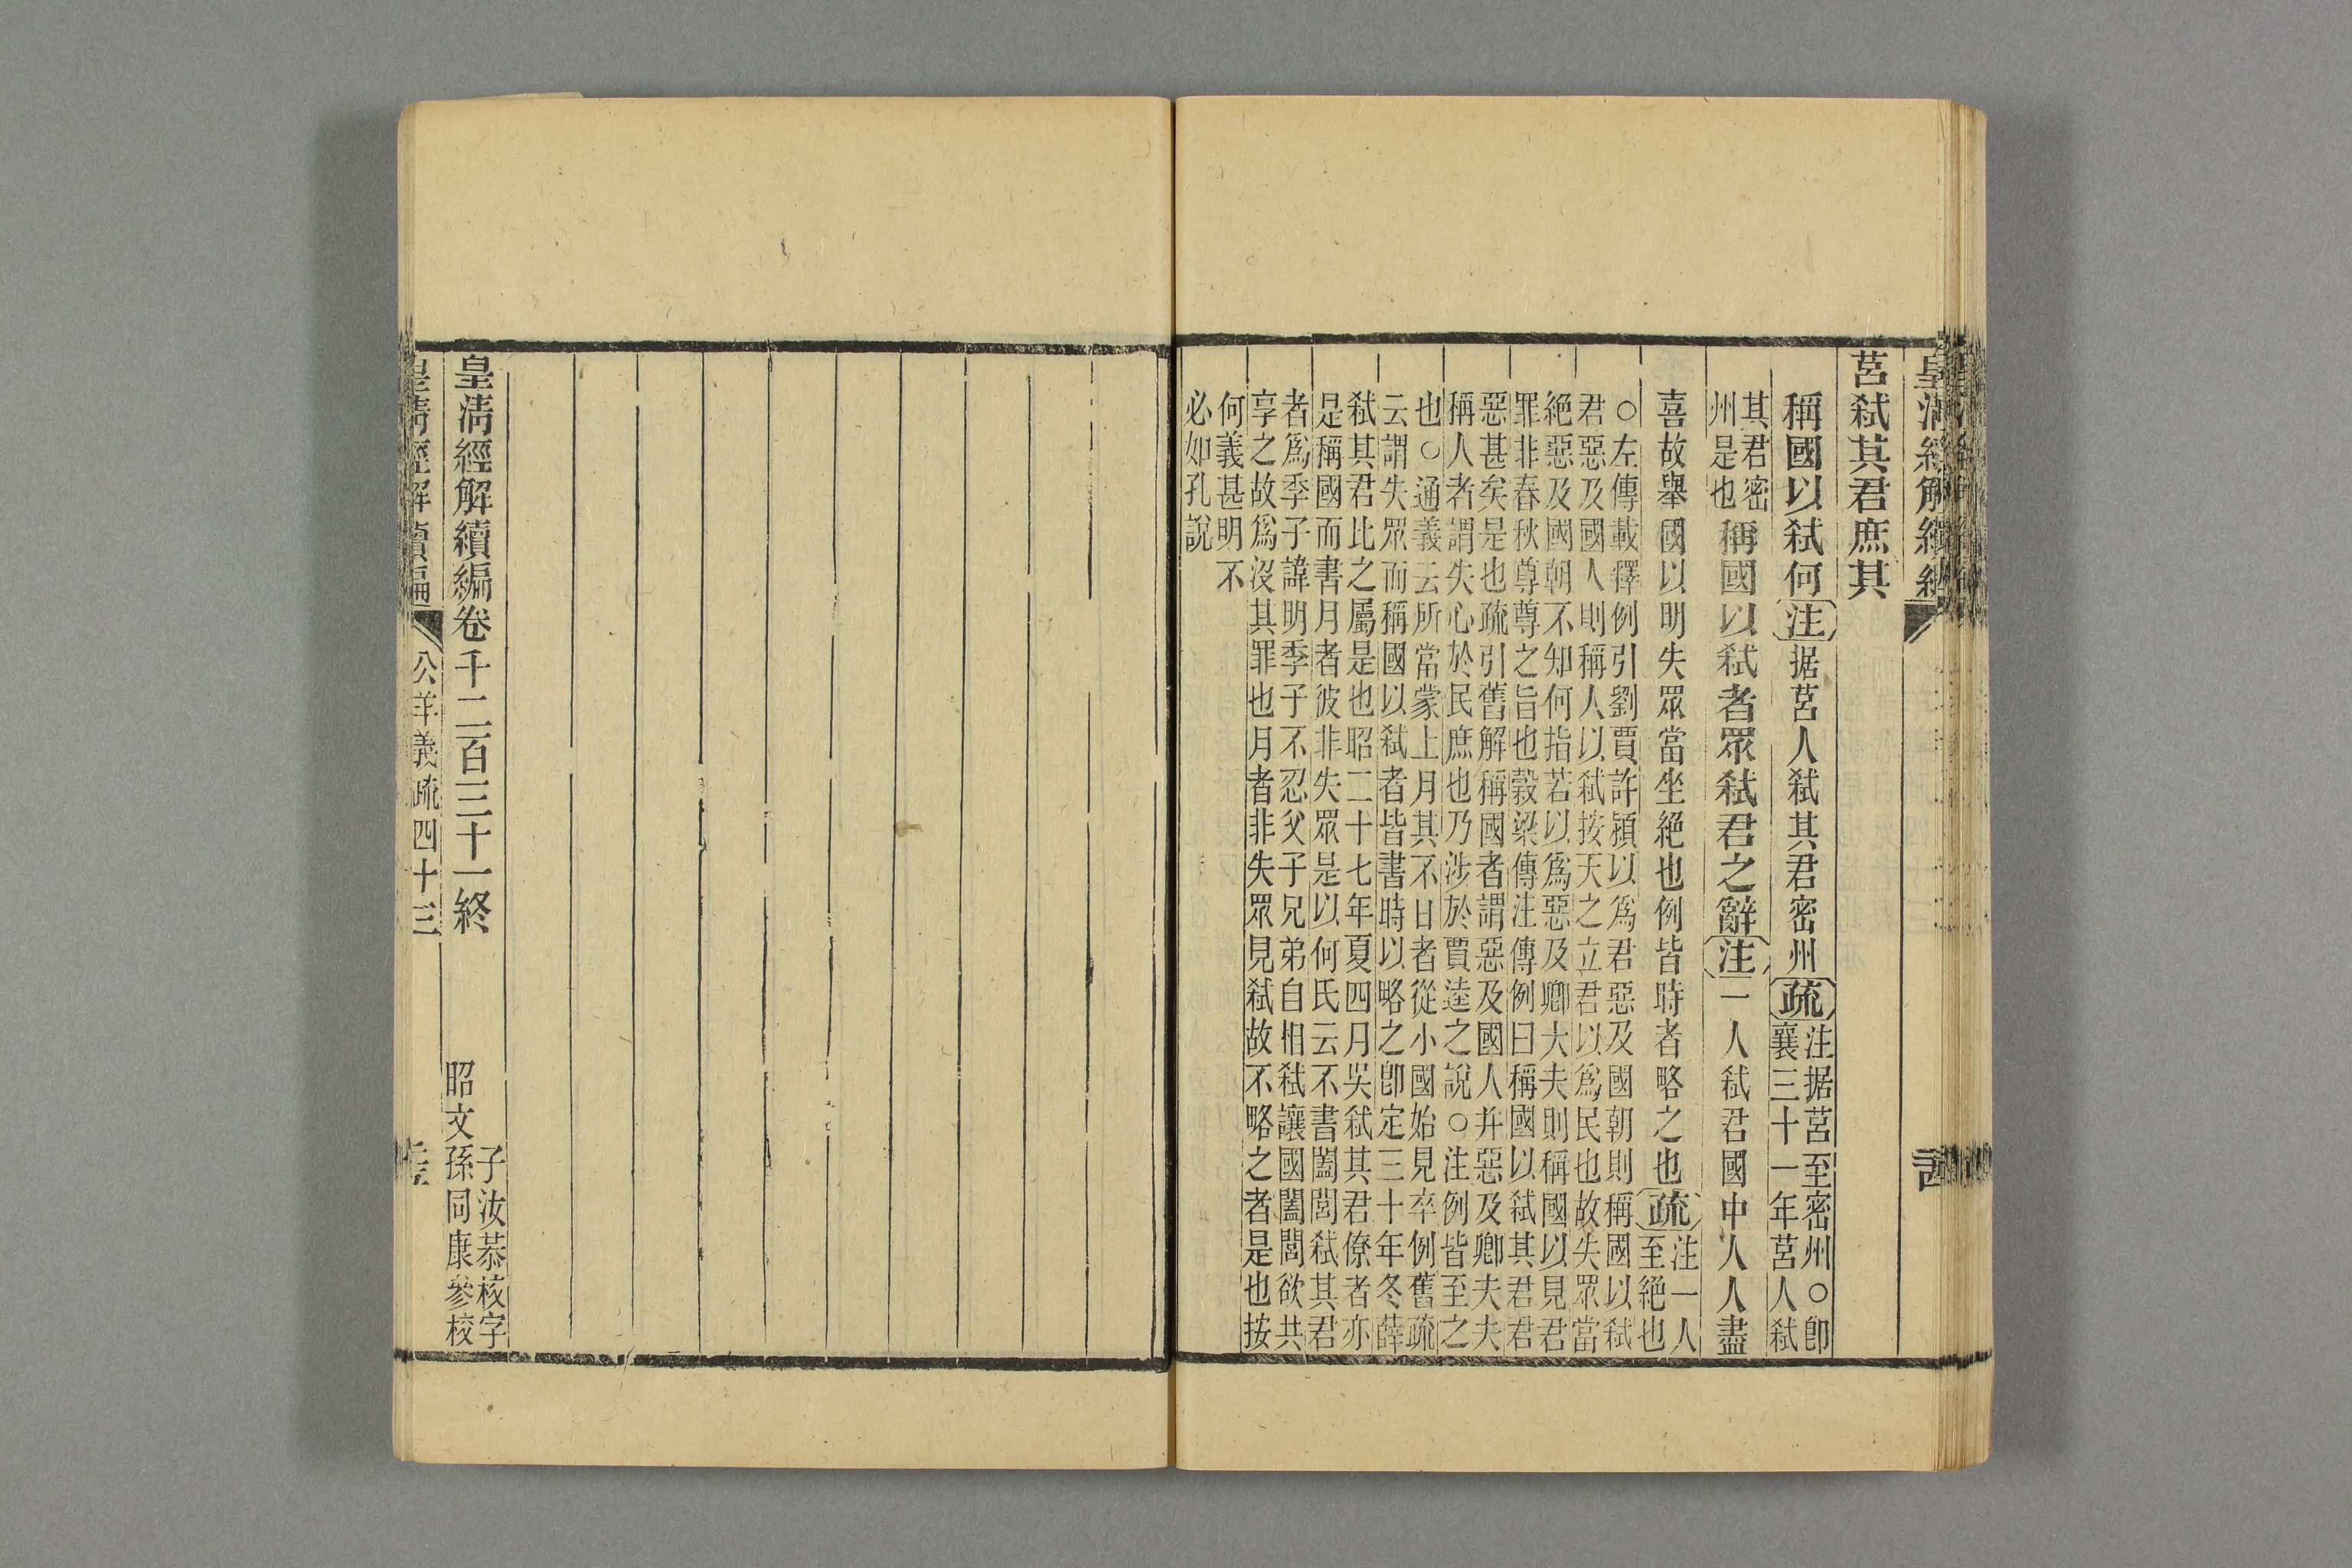 皇清經解續編
莒弒其君庶其
稱國以弒何注据莒人弒其君密州疏注据莒至密州○卽
襄三十一年莒人弒
其君密
州是也稱國以弒者眾弒君之辭注一人弒君國中人人盡
喜故舉國以明失眾當坐絕也例皆時者略之也疏注一人
至絕也
○左傳載釋例引劉賈許穎以爲君惡及國朝則稱國以弒
君惡及國人則稱人以弒按天之立君以爲民也故失眾當
絕惡及國朝不知何指若以爲惡及卿大夫則稱國以見君
罪非春秋尊尊之旨也穀梁傳注傳例曰稱國以弒其君君
惡甚矣是也疏引舊解稱國者謂惡及國人幷惡及卿夫夫
稱人者謂失心於民庶也乃涉於賈逵之說○注例皆至之
也○通義云所當蒙上月其不日者從小國始見卒例舊疏
云謂失眾而稱國以弒者皆書時以略之卽定三十年冬薛
弒其君比之屬是也昭二十七年夏四月吳弒其君僚者亦
是稱國而書月者彼非失眾是以何氏云不書闔閭弒其君
者爲季子諱明季子不忍父子兄弟自相弒讓國闔閭欲共
享之故爲沒其罪也月者非失眾見弒故不略之者是也按
何義甚明不
必如孔說
皇清經解續編卷千二百三十一終
子汝恭核字
昭文孫同康參校
皇清經解續編
公羊義疏四十三